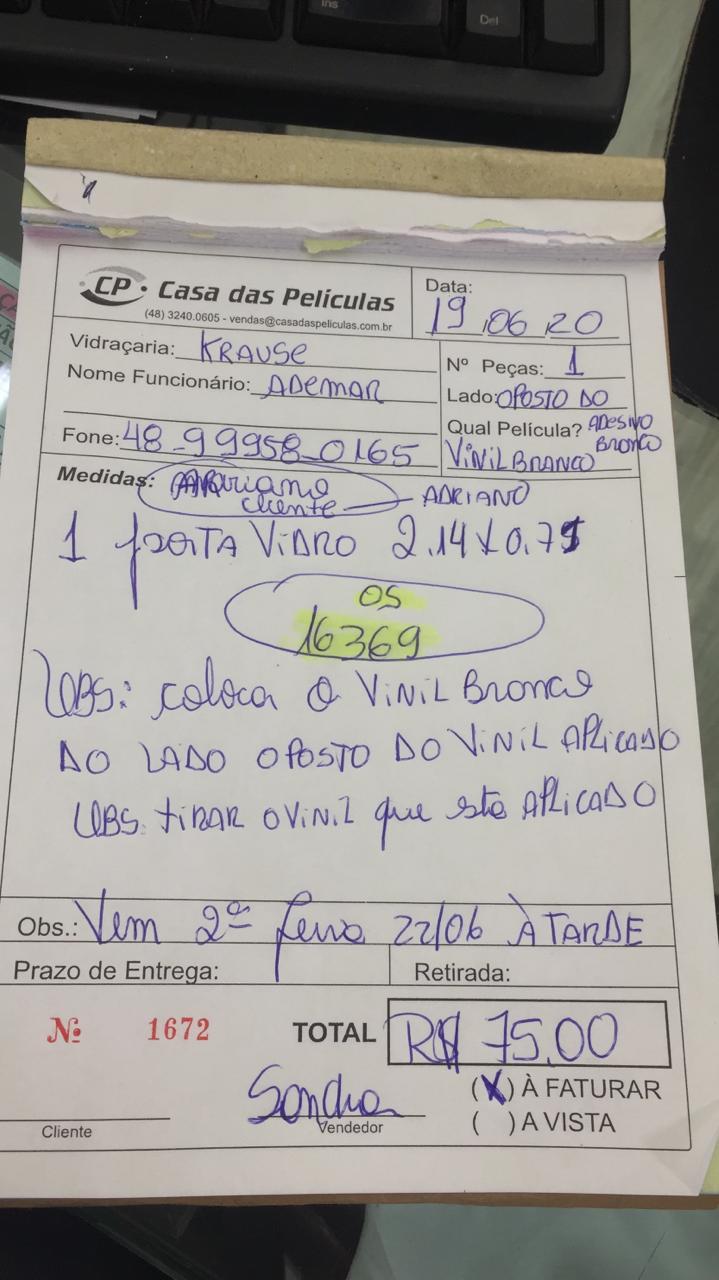 Ins
Del
CP Casa das Películas
(48) 3240.0605 - vendas@casadaspeliculas.com.br
Data:
19 06 20
Vidraçaria: KRAUSE
Nome Funcionário: ADEMAR
Fone: 48-99958-0165
Nº Peças: 1
Lado: OPOSTO DO
Qual Película? ADESIVO
BRONCO
VINIL BRANCO
Medidas:
cliente ADRIANO
1 PORTA VIDRO 2.14 X 0.75
OS
16369
OBS: coloca O VINIL Bronco
DO LADO OPOSTO DO VINIL APLICADO
OBS. TIRAR O VINIL que está APLICADO
Obs.: Vem 2ª feira 22/06 À TARDE
Prazo de Entrega:
Retirada:
Nº 1672
TOTAL R$ 75.00
(X) À FATURAR
( ) A VISTA
Sondra
Cliente
Vendedor